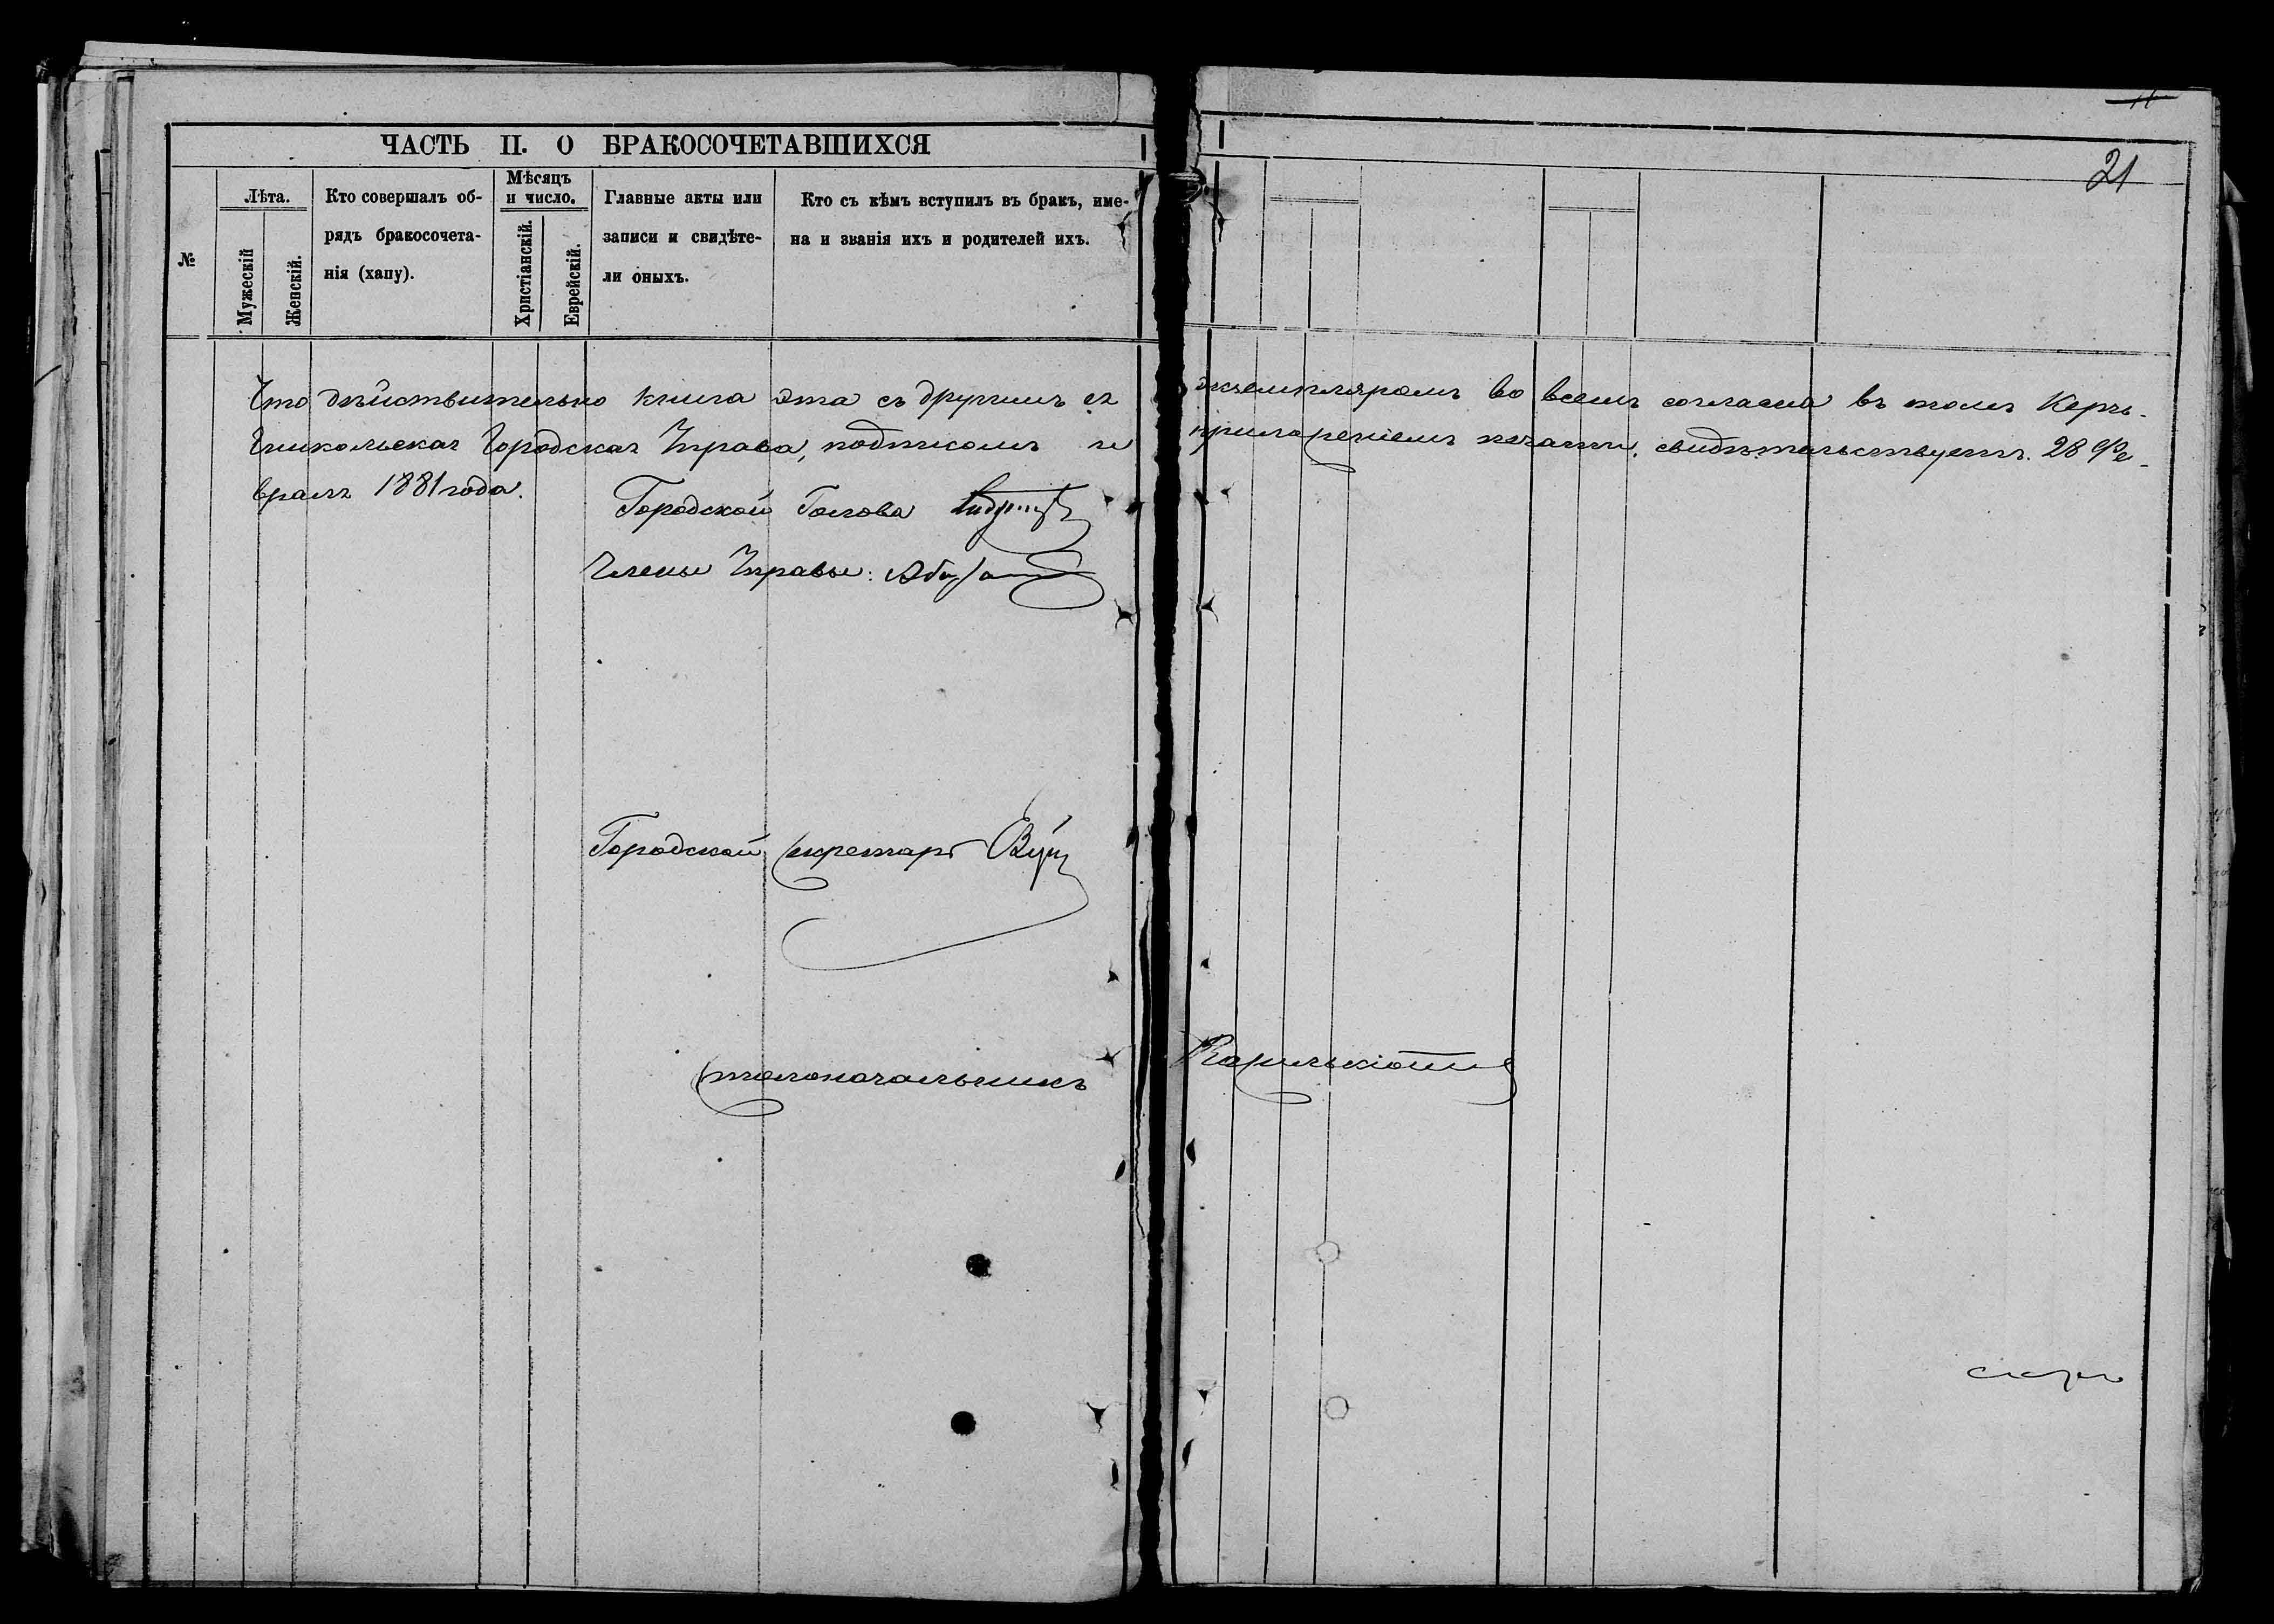 ЧАСТЬ II. О БРАКОСОЧЕТАВШИХСЯ
№
Лѣта.
Мужескій
Женскій.
Кто совершалъ об-
рядъ бракосочета-
нія (хапу).
Мѣсяцъ
и число.
Христіанскій.
Еврейскій.
Главные акты или
записи и свидѣте-
ли оныхъ.
Кто съ кѣмъ вступилъ въ бракъ, име-
на и званія ихъ и родителей ихъ.
21
Что дѣйствительно книга эта съ другимъ ея экземпляромъ во всемъ согласна въ томъ Керчь-
Еникольская Городская Управа, подписомъ и приложеніемъ печати, свидѣтельствуетъ. 28 Фе-
враля 1881 года.
Городской Голова
Члены Управы:
Городской Секретарь
Столоначальникъ